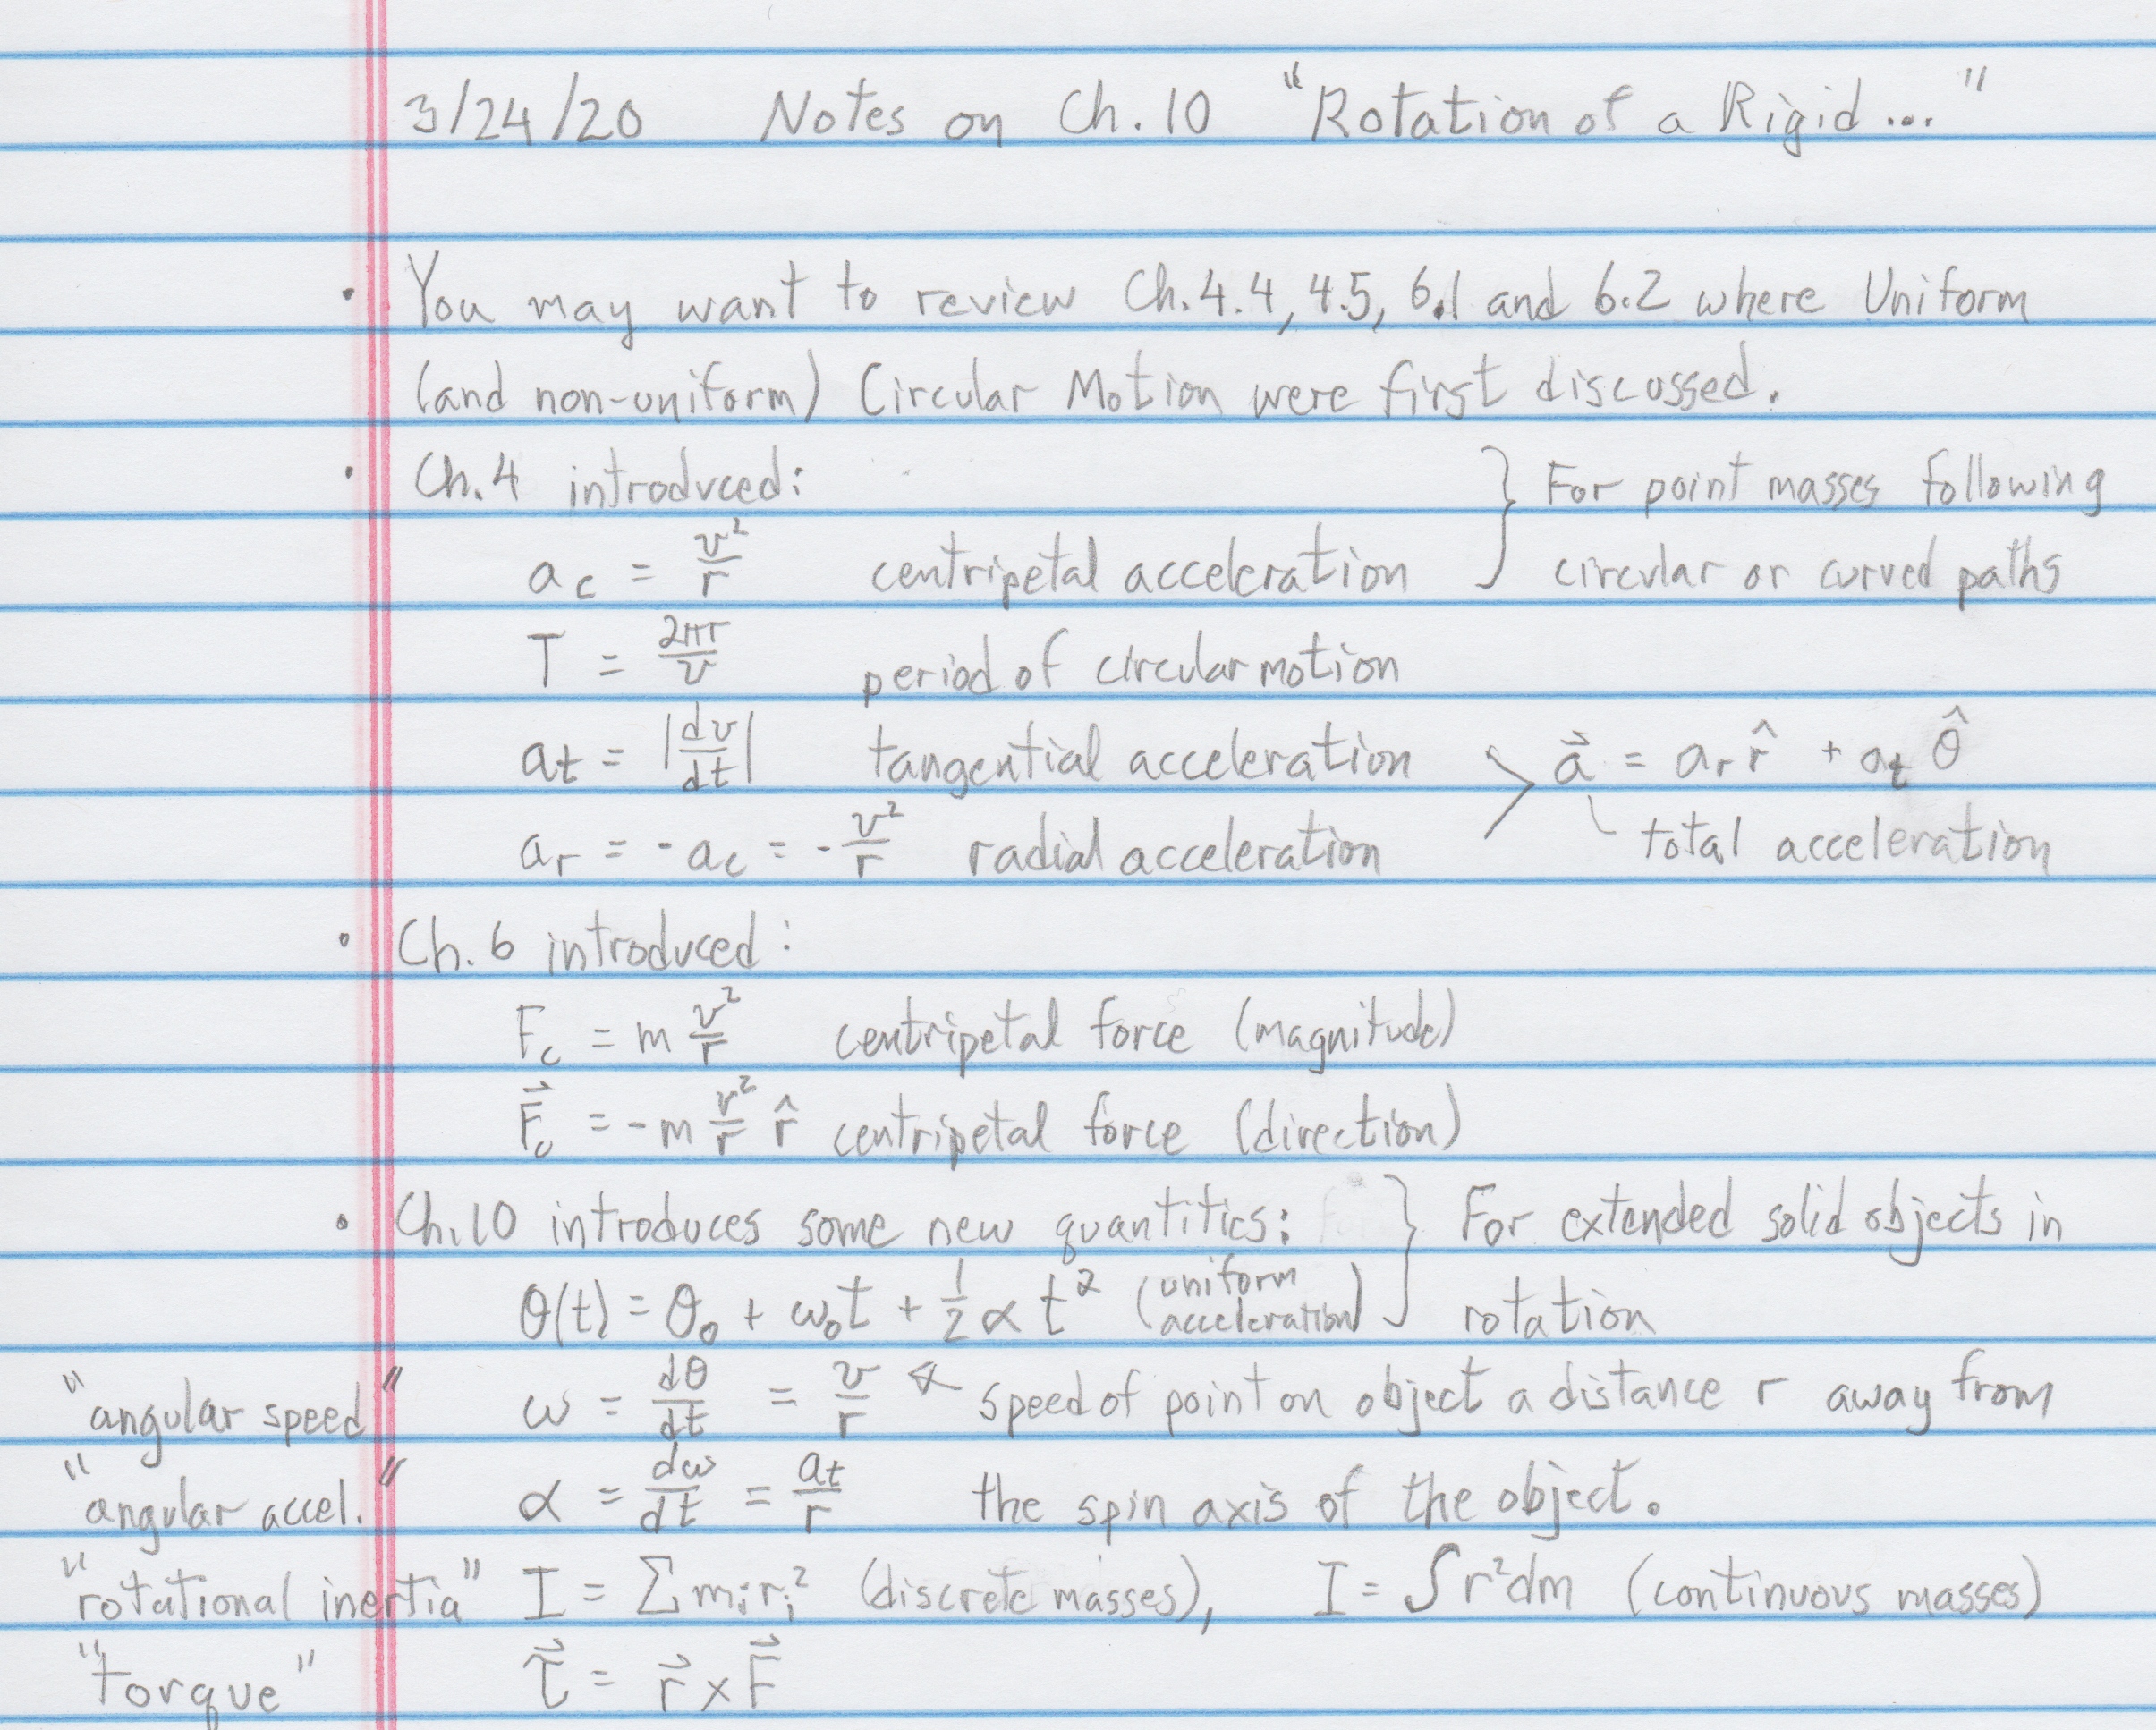 3/24/20 Notes on Ch. 10 "Rotation of a Rigid ..."
· You may want to review Ch. 4.4, 4.5, 6.1 and 6.2 where Uniform
(and non-uniform) Circular Motion were first discussed.
· Ch. 4 introduced: } For point masses following
a_c = v²/r centripetal acceleration circular or curved paths
T = 2πr/v period of circular motion
a_t = |dv/dt| tangential acceleration > a⃗ = a_r r̂ + a_t θ̂
a_r = -a_c = -v²/r radial acceleration total acceleration
· Ch. 6 introduced:
F_c = m v²/r centripetal force (magnitude)
F⃗_c = -m v²/r r̂ centripetal force (direction)
· Ch. 10 introduces some new quantities: } For extended solid objects in
θ(t) = θ₀ + ω₀t + ½ α t² (uniform acceleration) rotation
"angular speed" ω = dθ/dt = v/r ← speed of point on object a distance r away from
"angular accel." α = dω/dt = a_t/r the spin axis of the object.
"rotational inertia" I = Σ mᵢrᵢ² (discrete masses), I = ∫r²dm (continuous masses)
"torque" τ⃗ = r⃗ × F⃗